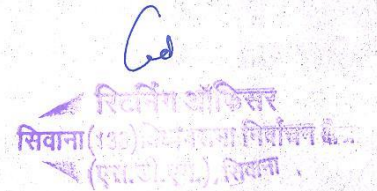 रिटर्निंग ऑफिसर
सिवाना (132) विधानसभा निर्वाचन क्षे...
(एस.डी.एम.), सिवाना